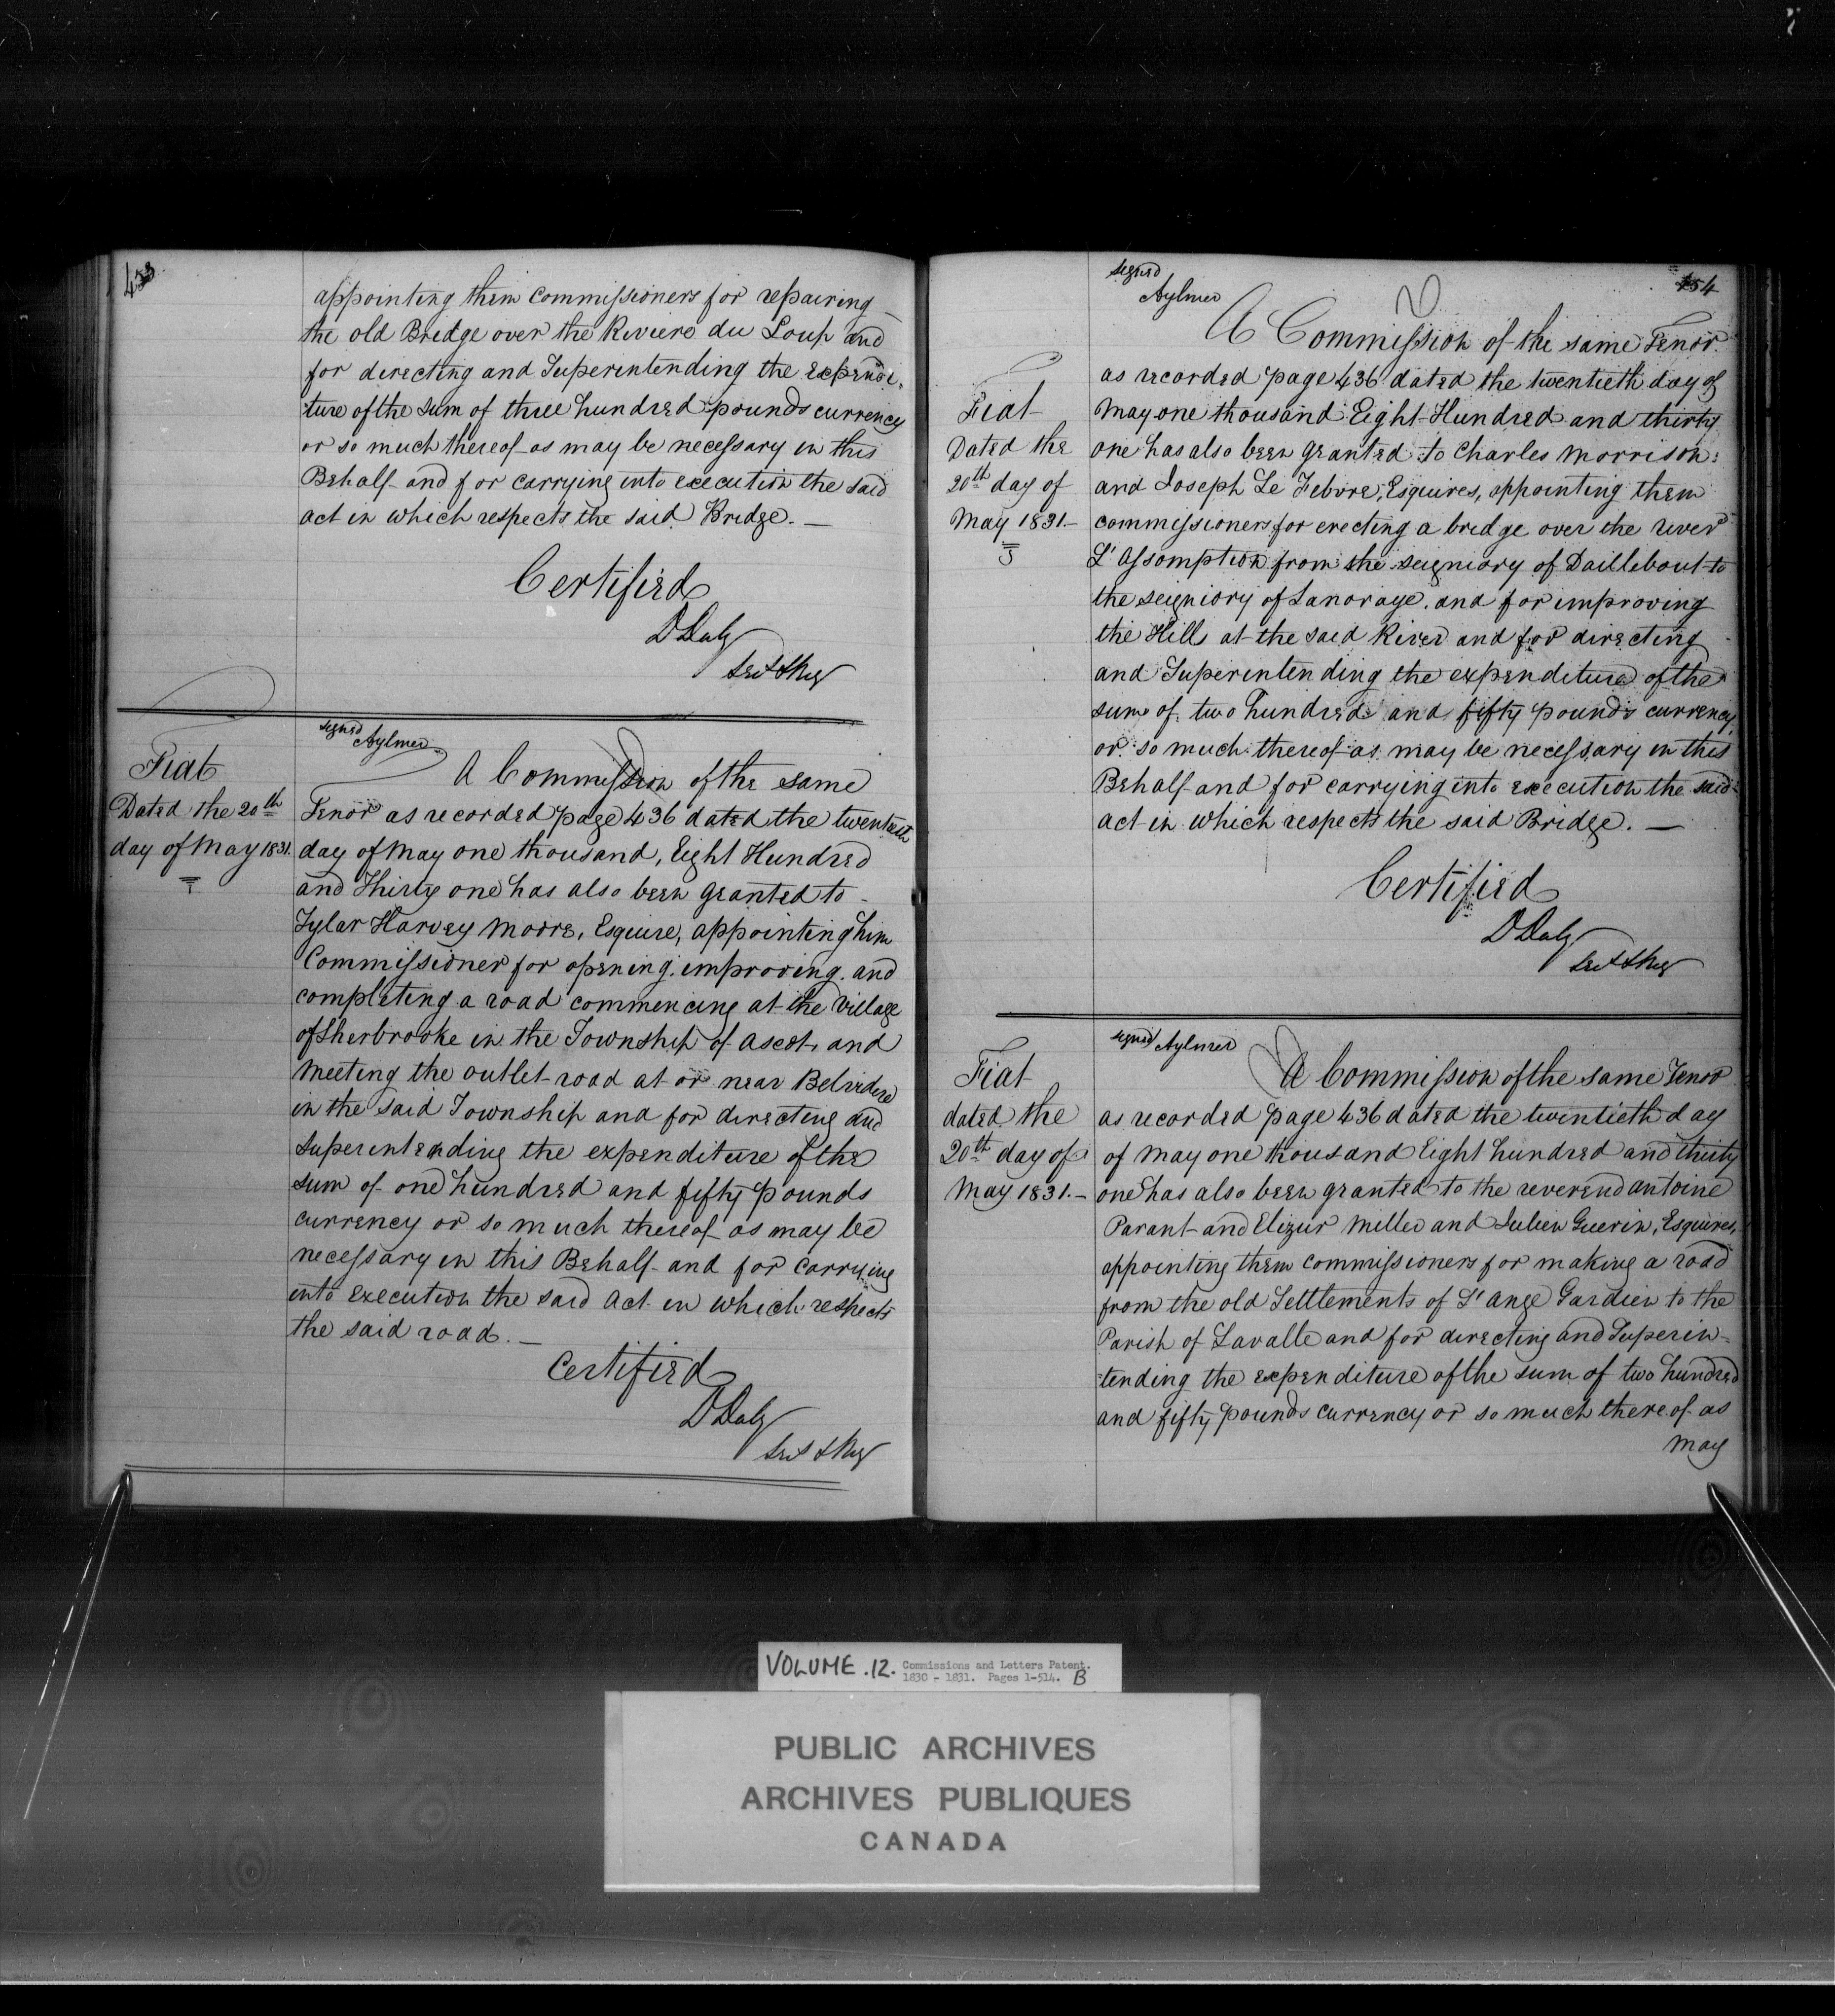 453
appointing them Commissioners for repairing
the old Bridge over the Riviere du Loup and
for directing and Superintending the expendi-
ture of the sum of three hundred pounds currency
or so much thereof as may be necessary in this
Behalf and for carrying into execution the said
act in which respects the said Bridge. —
Certified
D Daly
Fiat
Dated the 20th
day of May 1831.
signed
Aylmer
A Commission of the same
Tenor as recorded page 436 dated the twentieth
day of May one thousand, Eight Hundred
and Thirty one has also been granted to
Tylar Harvey Moore, Esquire, appointing him
Commissioner for opening, improving, and
completing a road commencing at the Village
of Sherbrooke in the Township of Ascot, and
meeting the outlet road at or near Belvidere
in the said Township and for directing and
superintending the expenditure of the
sum of one hundred and fifty pounds
currency or so much thereof as may be
necessary in this Behalf and for carrying
into execution the said Act in which respects
the said road. —
Certified
D Daly
454
signed
Aylmer
Fiat
Dated the
20th day of
May 1831.—
A Commission of the same Tenor
as recorded page 436 dated the twentieth day of
May one thousand Eight Hundred and thirty
one has also been granted to Charles Morrison
and Joseph Le Febvre, Esquires, appointing them
commissioners for erecting a bridge over the river
L'Assomption from the seigniory of Daillebout to
the seigniory of Lanoraye, and for improving
the Hills at the said River and for directing
and Superintending the expenditure of the
sum of two hundred and fifty pounds currency,
or so much thereof as may be necessary in this
Behalf and for carrying into execution the said
act in which respects the said Bridge. —
Certified
D Daly
Fiat
dated the
20th day of
May 1831.—
signed Aylmer
A Commission of the same Tenor
as recorded page 436 dated the twentieth day
of May one thousand Eight hundred and thirty
one has also been granted to the reverend Antoine
Parant and Elizur Miller and Julien Guerin, Esquires,
appointing them commissioners for making a road
from the old Settlements of L'Ange Gardien to the
Parish of Lavalle and for directing and Superin-
tending the expenditure of the sum of two hundred
and fifty pounds currency or so much thereof as
may
VOLUME .12. Commissions and Letters Patent.
1830 - 1831. Pages 1-514. B
PUBLIC ARCHIVES
ARCHIVES PUBLIQUES
CANADA